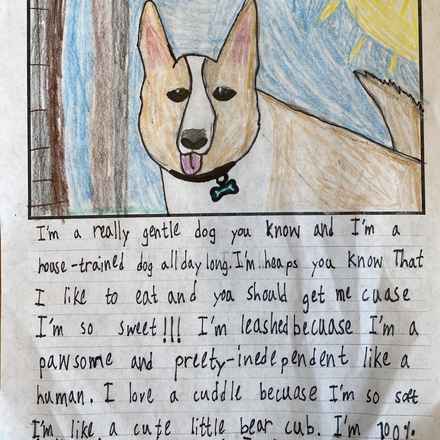 I'm a really gentle dog you know and I'm a
house-trained dog all day long. I'm heaps you know That
I like to eat and you should get me cuase
I'm so sweet!!! I'm leashed becuase I'm a
pawsome and preety-inedependent like a
human. I love a cuddle becuase I'm so soft
I'm like a cute little bear cub. I'm 100%